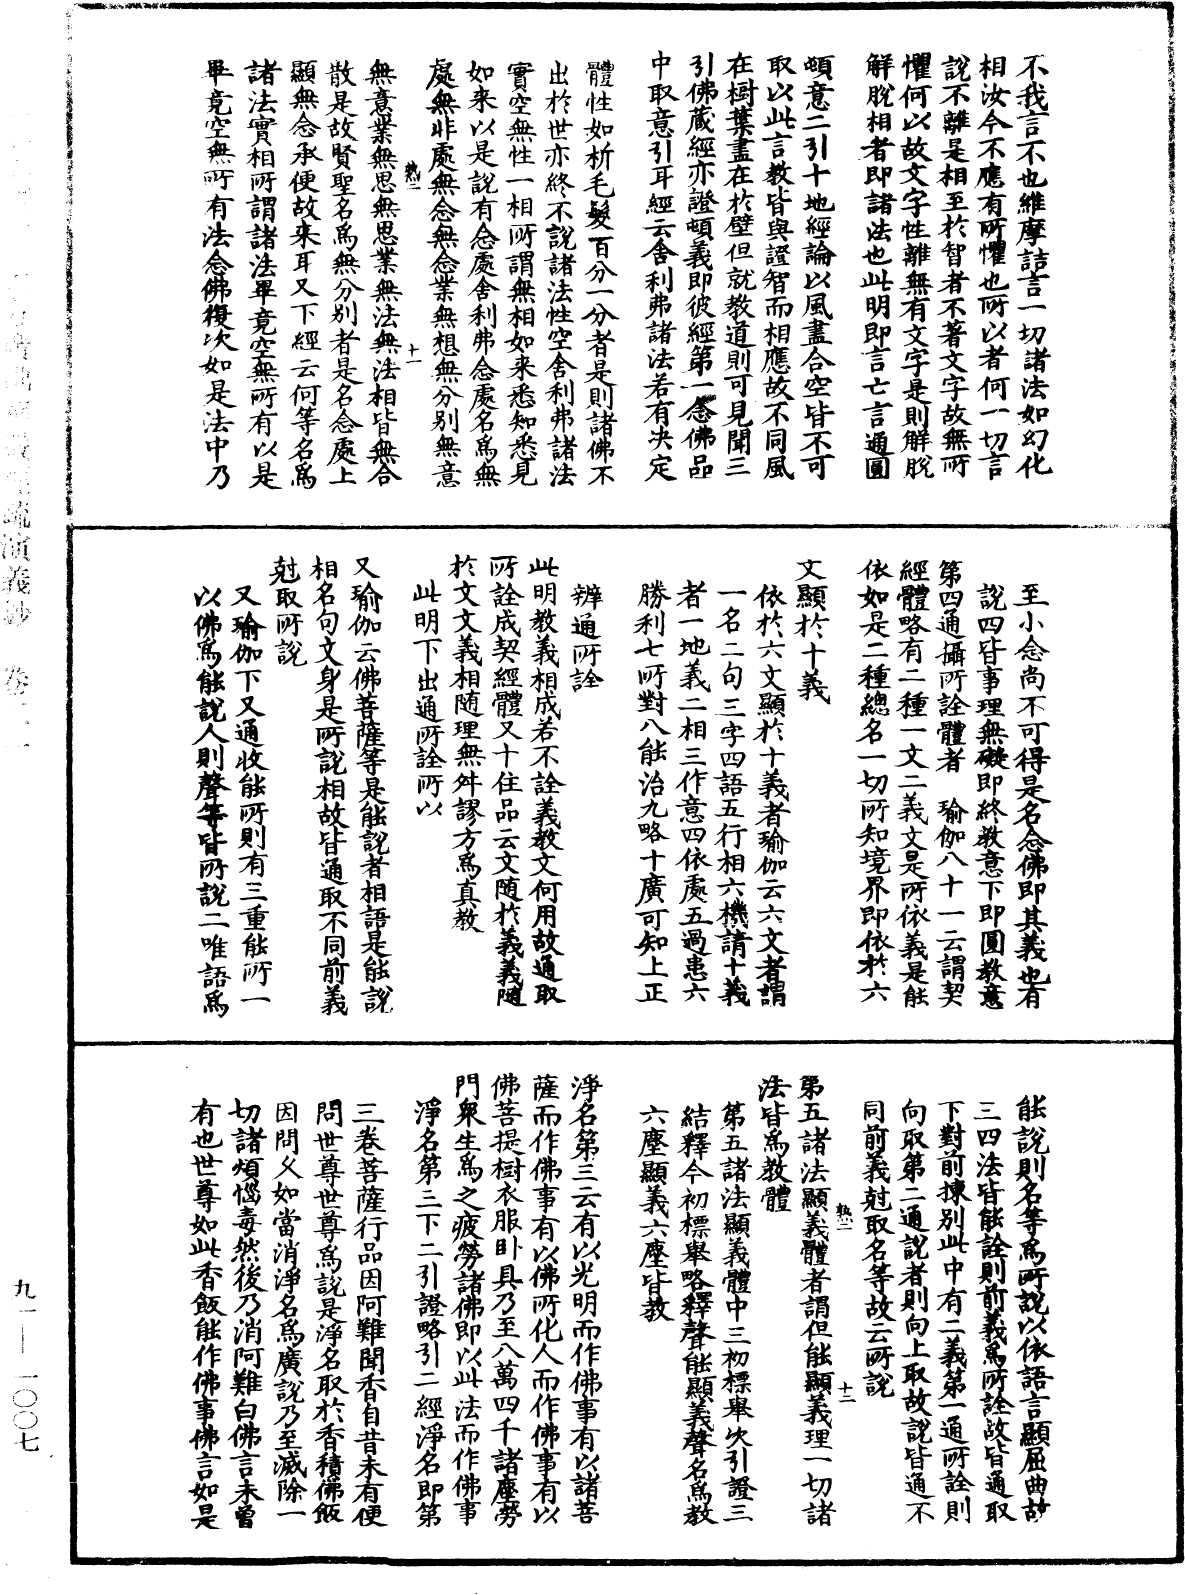 不我言不也維摩詰言一切諸法如幻化
相汝今不應有所懼也所以者何一切言
說不離是相至於智者不著文字故無所
懼何以故文字性離無有文字是則解脫
解脫相者即諸法也此明即言亡言通圓
頓意二引十地經論以風畫合空皆不可
取以此言教皆與證智而相應故不同風
在樹葉畫在於壁但就教道則可見聞三
引佛藏經亦證頓義即彼經第一念佛品
中取意引耳經云舍利弗諸法若有決定
體性如析毛髮百分一分者是則諸佛不
出於世亦終不說諸法性空舍利弗諸法
實空無性一相所謂無相如來悉知悉見
如來以是說有念處舍利弗念處名為無
處無非處無念無念業無想無分別無意
無意業無思無思業無法無法相皆無合
散是故賢聖名為無分別者是名念處上
顯無念承便故來耳又下經云何等名為
諸法實相所謂諸法畢竟空無所有以是
畢竟空無所有法念佛復次如是法中乃
至小念尚不可得是名念佛即其義也有
說四皆事理無礙即終教意下即圓教意
第四通攝所詮體者　瑜伽八十一云謂契
經體略有二種一文二義文是所依義是能
依如是二種總名一切所知境界即依於六
文顯於十義
依於六文顯於十義者瑜伽云六文者謂
一名二句三字四語五行相六機請十義
者一地義二相三作意四依處五過患六
勝利七所對八能治九略十廣可知上正
辨通所詮
此明教義相成若不詮義教文何用故通取
所詮成契經體又十住品云文隨於義義隨
於文文義相隨理無舛謬方為真教
此明下出通所詮所以
又瑜伽云佛菩薩等是能說者相語是能說
相名句文身是所說相故皆通取不同前義
尅取所說
又瑜伽下又通收能所則有三重能所一
以佛為能說人則聲等皆所說二唯語為
能說則名等為所說以依語言顯屈曲故
三四法皆能詮則前義為所詮故皆通取
下對前揀別此中有二義第一通所詮則
向取第二通說者則向上取故說皆通不
同前義尅取名等故云所說
第五諸法顯義體者謂但能顯義理一切諸
法皆為教體
第五諸法顯義體中三初標舉次引證三
結釋今初標舉略釋聲能顯義聲名為教
六塵顯義六塵皆教
淨名第三云有以光明而作佛事有以諸菩
薩而作佛事有以佛所化人而作佛事有以
佛菩提樹衣服臥具乃至八萬四千諸塵勞
門眾生為之疲勞諸佛即以此法而作佛事
淨名第三下二引證略引二經淨名即第
三卷菩薩行品因阿難聞香自昔未有便
問世尊世尊為說是淨名取於香積佛飯
因問久如當消淨名為廣說乃至滅除一
切諸煩惱毒然後乃消阿難白佛言未曾
有也世尊如此香飯能作佛事佛言如是
疏演義鈔　卷二一
九一—一〇〇七